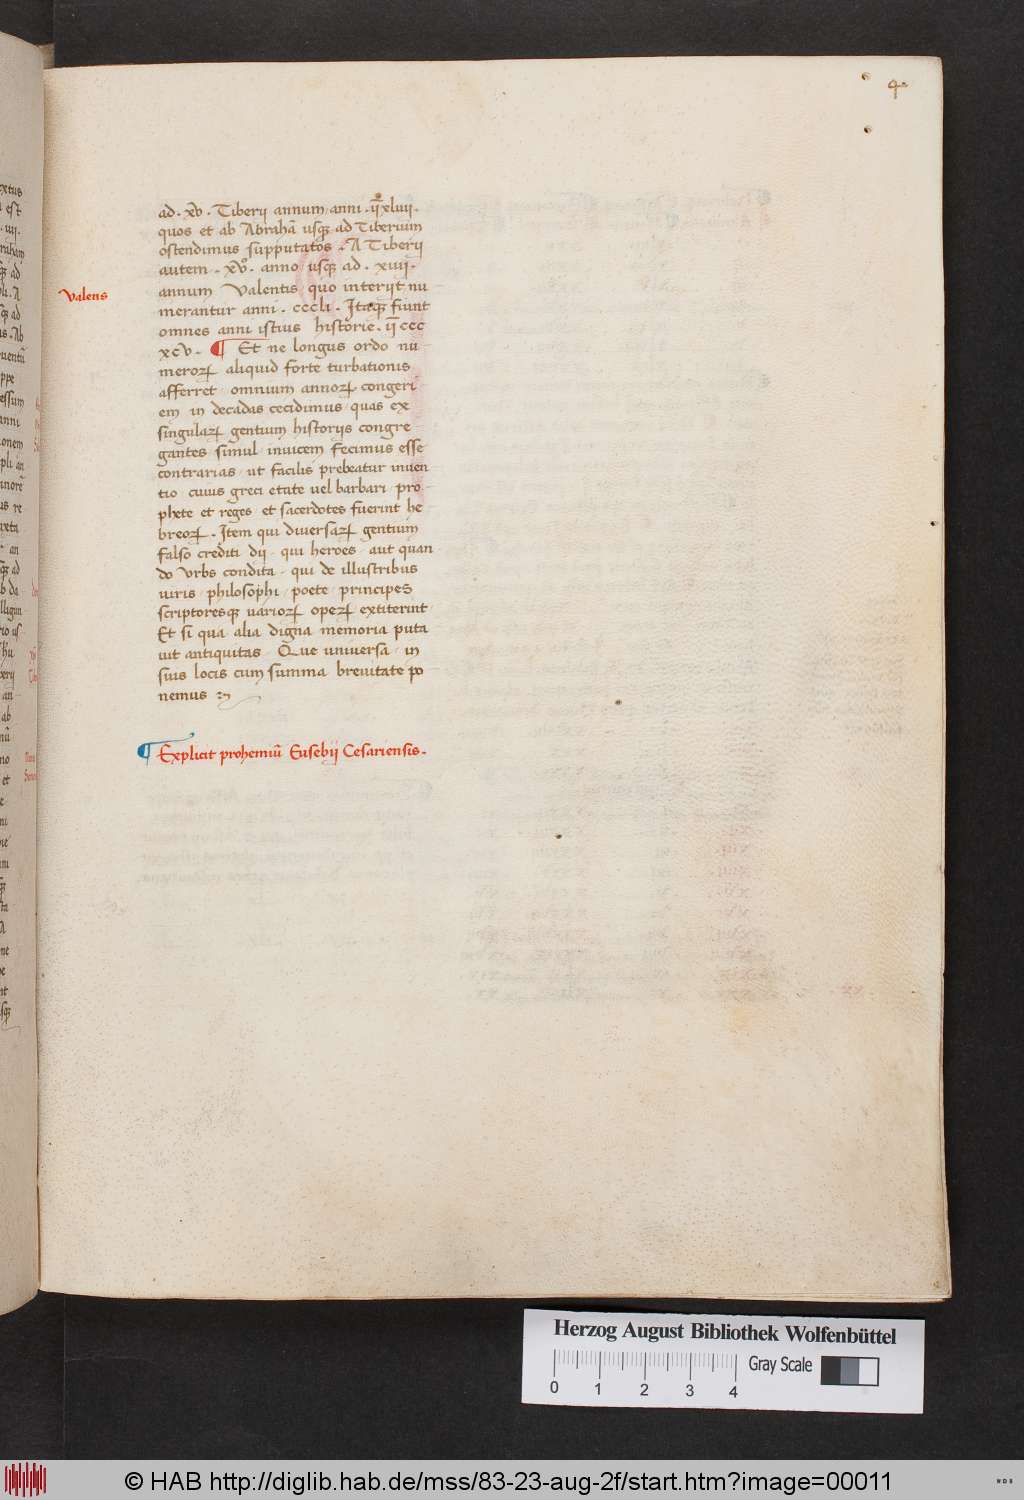 4
ad . xv . Tiberij annum anni . ii xliiij .
quos et ab Abrahā usqꝫ ad Tiberium
ostendimus supputatos . A Tiberij
autem . xvº. anno usqꝫ ad . xiiij .
Valens
annum Valentis quo interijt nu
merantur anni . cccli . Itaqꝫ fiunt
omnes anni istius historie . ii ccc
xcv . ¶ Et ne longus ordo nu-
meroꝝ aliquid forte turbationis
afferret omnium annoꝝ congeri-
em in decadas cecidimus quas ex
singulaꝝ gentium historijs congre-
gantes simul invicem fecimus esse
contrarias ut facilis prebeatur inven
tio cuius greci etate vel barbari pro-
phete et reges et sacerdotes fuerint he
breoꝝ . Item qui diversaꝝ gentium
falso crediti dij qui heroes aut quan
do Vrbs condita qui de illustribus
viris philosophi poete principes
scriptoresqꝫ varioꝝ opeꝝ extiterint
Et si qua alia digna memoria puta
vit antiquitas Que universa in
suis locis cum summa brevitate po
nemus
¶ Explicit prohemiū Eusebij Cesariensis .
Herzog August Bibliothek Wolfenbüttel
0 1 2 3 4 Gray Scale
© HAB http://diglib.hab.de/mss/83-23-aug-2f/start.htm?image=00011